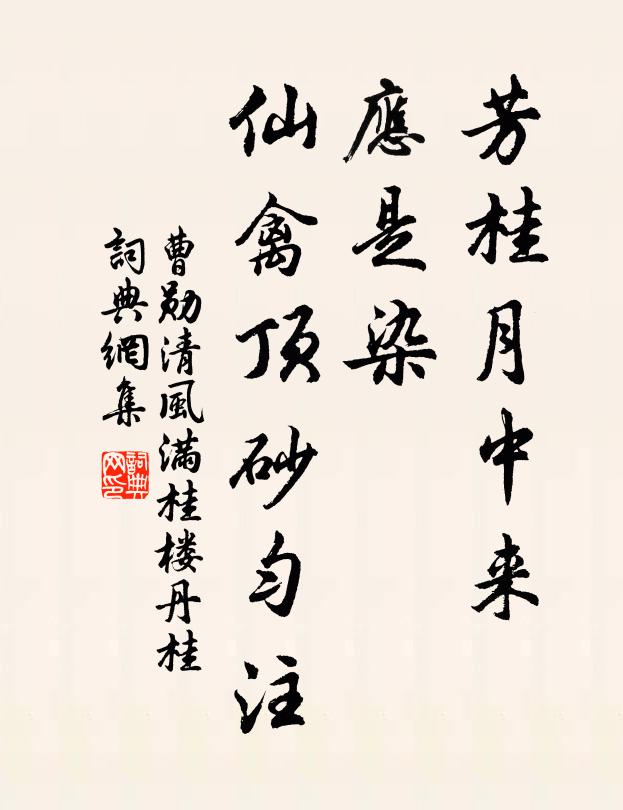 芳桂月中来
應是染
仙禽顶砂匀注
曹勋清風满桂楼丹桂
詞典網集
詞典網印